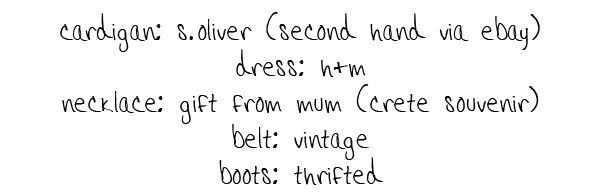 cardigan: s.oliver (second hand via ebay)
dress: h+m
necklace: gift from mum (crete souvenir)
belt: vintage
boots: thrifted